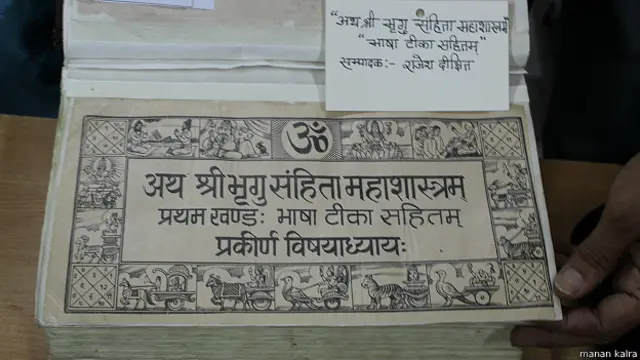 "अथ श्री भृगु संहिता महाशास्त्रम्
"भाषा टीका सहितम्"
सम्पादक:- राजेश दीक्षित
ॐ
अथ श्रीभृगुसंहितामहाशास्त्रम्
प्रथम खण्डः भाषा टीका सहितम्
प्रकीर्ण विषयाध्यायः
manan kalra